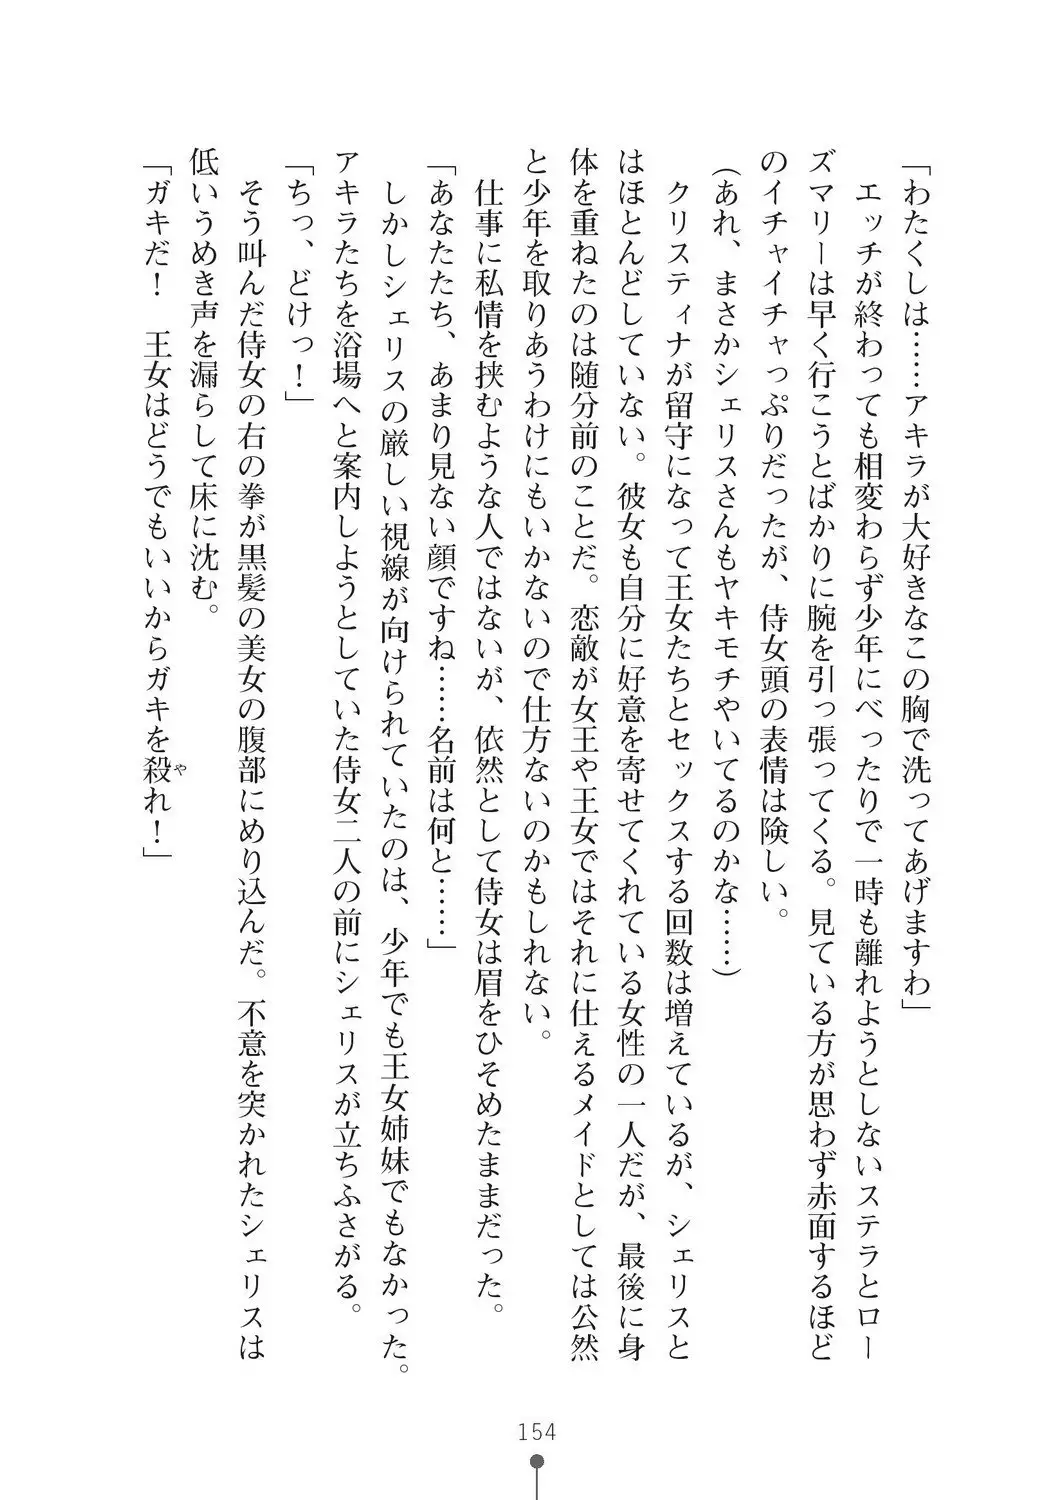 「わたくしは……アキラが大好きなこの胸で洗ってあげますわ」
　エッチが終わっても相変わらず少年にべったりで一時も離れようとしないステラとロー
ズマリーは早く行こうとばかりに腕を引っ張ってくる。見ている方が思わず赤面するほど
のイチャイチャっぷりだったが、侍女頭の表情は険しい。
(あれ、まさかシェリスさんもヤキモチやいてるのかな……)
　クリスティナが留守になって王女たちとセックスする回数は増えているが、シェリスと
はほとんどしていない。彼女も自分に好意を寄せてくれている女性の一人だが、最後に身
体を重ねたのは随分前のことだ。恋敵が女王や王女ではそれに仕えるメイドとしては公然
と少年を取りあうわけにもいかないので仕方ないのかもしれない。
　仕事に私情を挟むような人ではないが、依然として侍女は眉をひそめたままだった。
「あなたたち、あまり見ない顔ですね……名前は何と……」
　しかしシェリスの厳しい視線が向けられていたのは、少年でも王女姉妹でもなかった。
アキラたちを浴場へと案内しようとしていた侍女二人の前にシェリスが立ちふさがる。
「ちっ、どけっ！」
　そう叫んだ侍女の右の拳が黒髪の美女の腹部にめり込んだ。不意を突かれたシェリスは
低いうめき声を漏らして床に沈む。
「ガキだ！　王女はどうでもいいからガキを殺れ！」
や
154